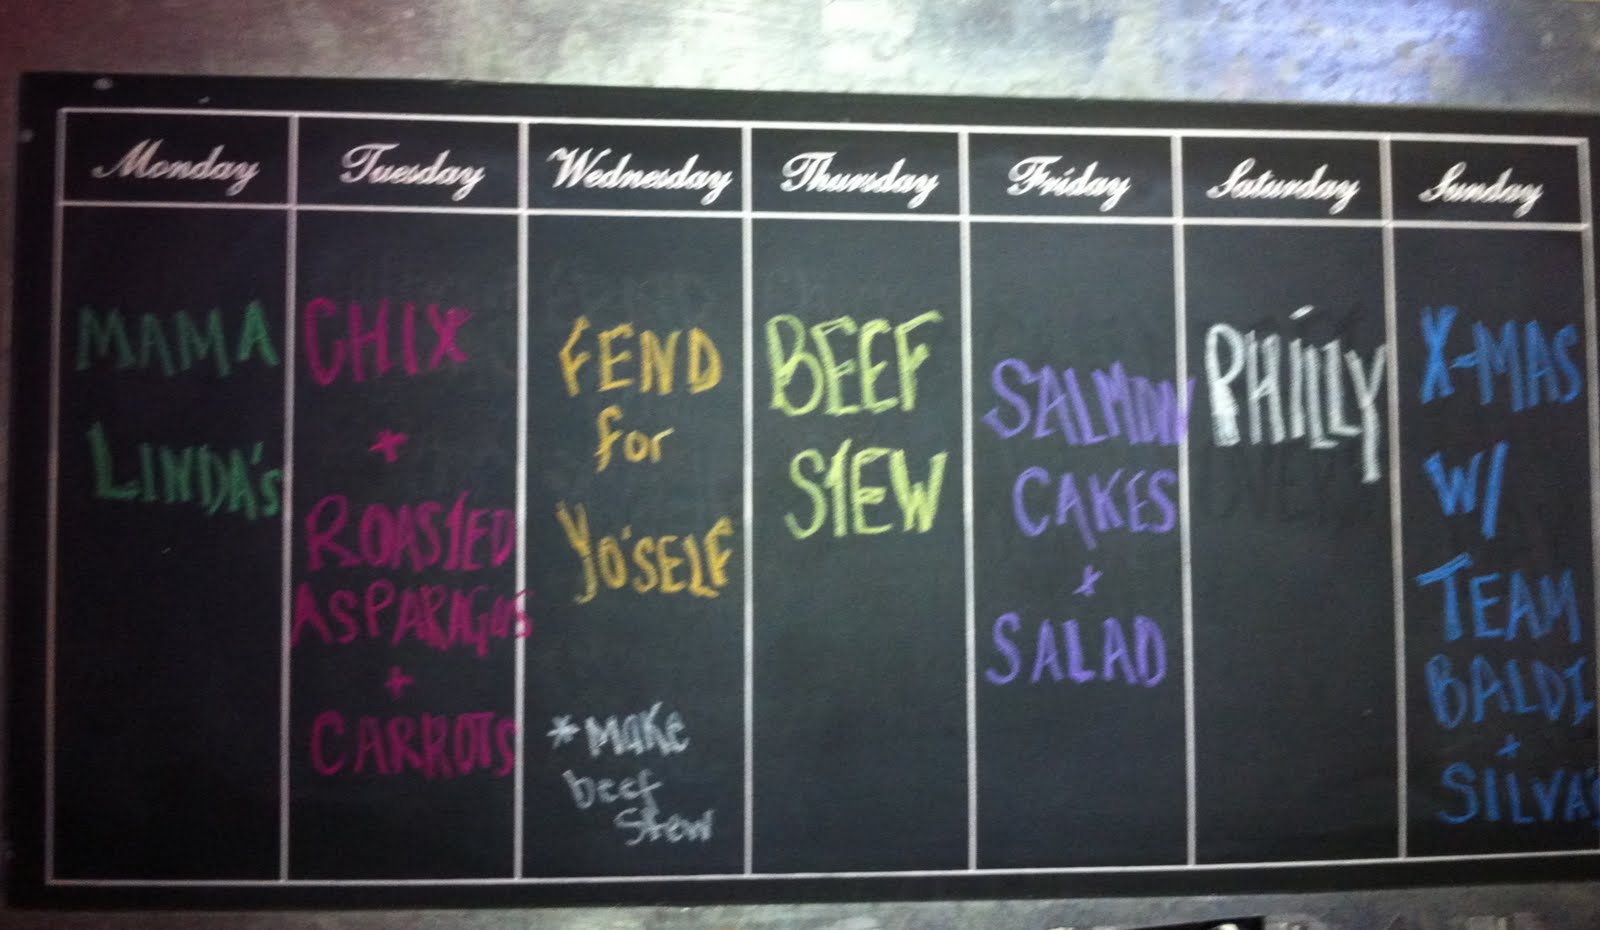 Monday
Tuesday
Wednesday
Thursday
Friday
Saturday
Sunday
MAMA
LINDA'S
CHIX
+
ROASTED
ASPARAGUS
+
CARROTS
FEND
for
YO'SELF
*MAKE
beef
Stew
BEEF
STEW
SALMON
CAKES
+
SALAD
PHILLY
X-MAS
W/
TEAM
BALDI
+
SILVA'S